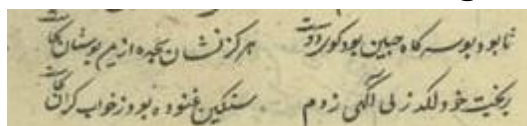 تا بود بوسه گاه جبین بود کوی دوست هرگز نشان سجده ازیم بوستان
بخت خود لگد زبی آگهی زدم سنگین غنوده بود ز خواب گران